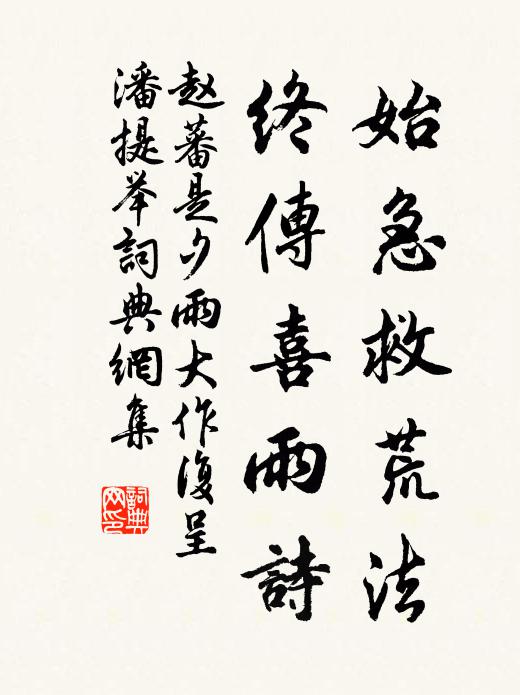 始急救荒法
終傳喜雨詩
赵蕃是夕雨大作復呈
潘提举詞典網集
詞典网印